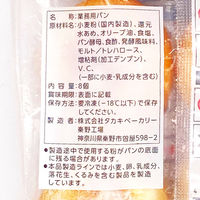 名称:業務用パン
原材料名:小麦粉(国内製造)、還元
水あめ、オリーブ油、食塩、
パン酵母、食酢、発酵風味料、
モルト/トレハロース、
増粘剤(加工デンプン)、
V.C、
(一部に小麦・乳成分を含む)
内容量:8個
賞味期限:表面に記載
保存方法:要冷凍(-18℃以下)で保存
してください。
製造者:株式会社タカキベーカリー
秦野工場
神奈川県秦野市曽屋598-2
●製造途中で使用する粉がパンの底面
に残る場合があります。
●本品製造ラインでは小麦、卵、乳成分、
落花生、くるみを含む製品を製造
しています。